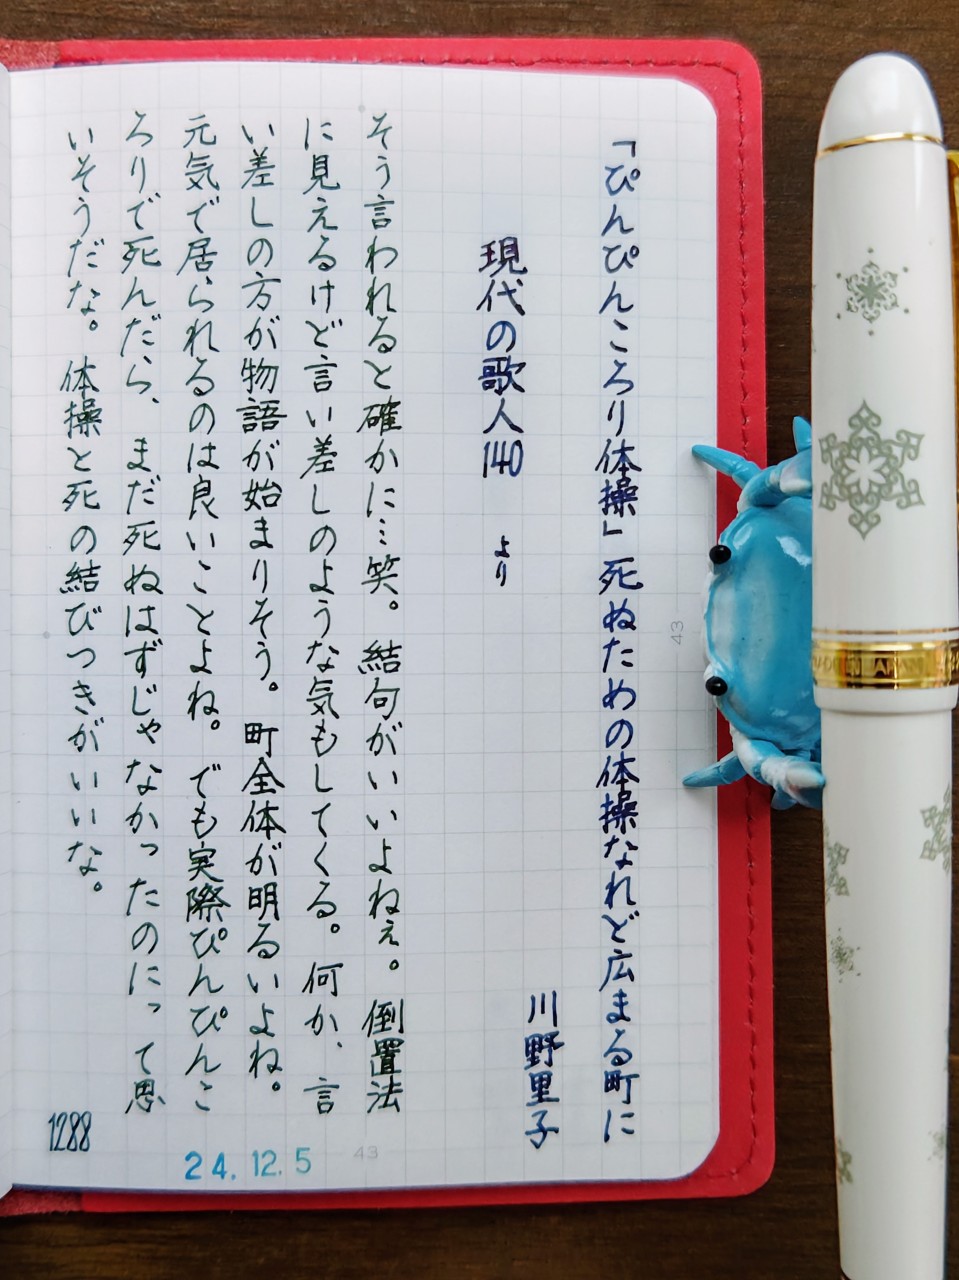 「ぴんぴんころり体操」死ぬための体操なれど広まる町に
川野里子
現代の歌人140 より
そう言われると確かに…笑。結句がいいよねぇ。倒置法
に見えるけど言い差しのような気もしてくる。何か、言
い差しの方が物語が始まりそう。町全体が明るいよね。
元気で居られるのは良いことよね。でも実際ぴんぴんこ
ろりで死んだら、まだ死ぬはずじゃなかったのにって思
いそうだな。体操と死の結びつきがいいな。
1288
24.12.5
43
43